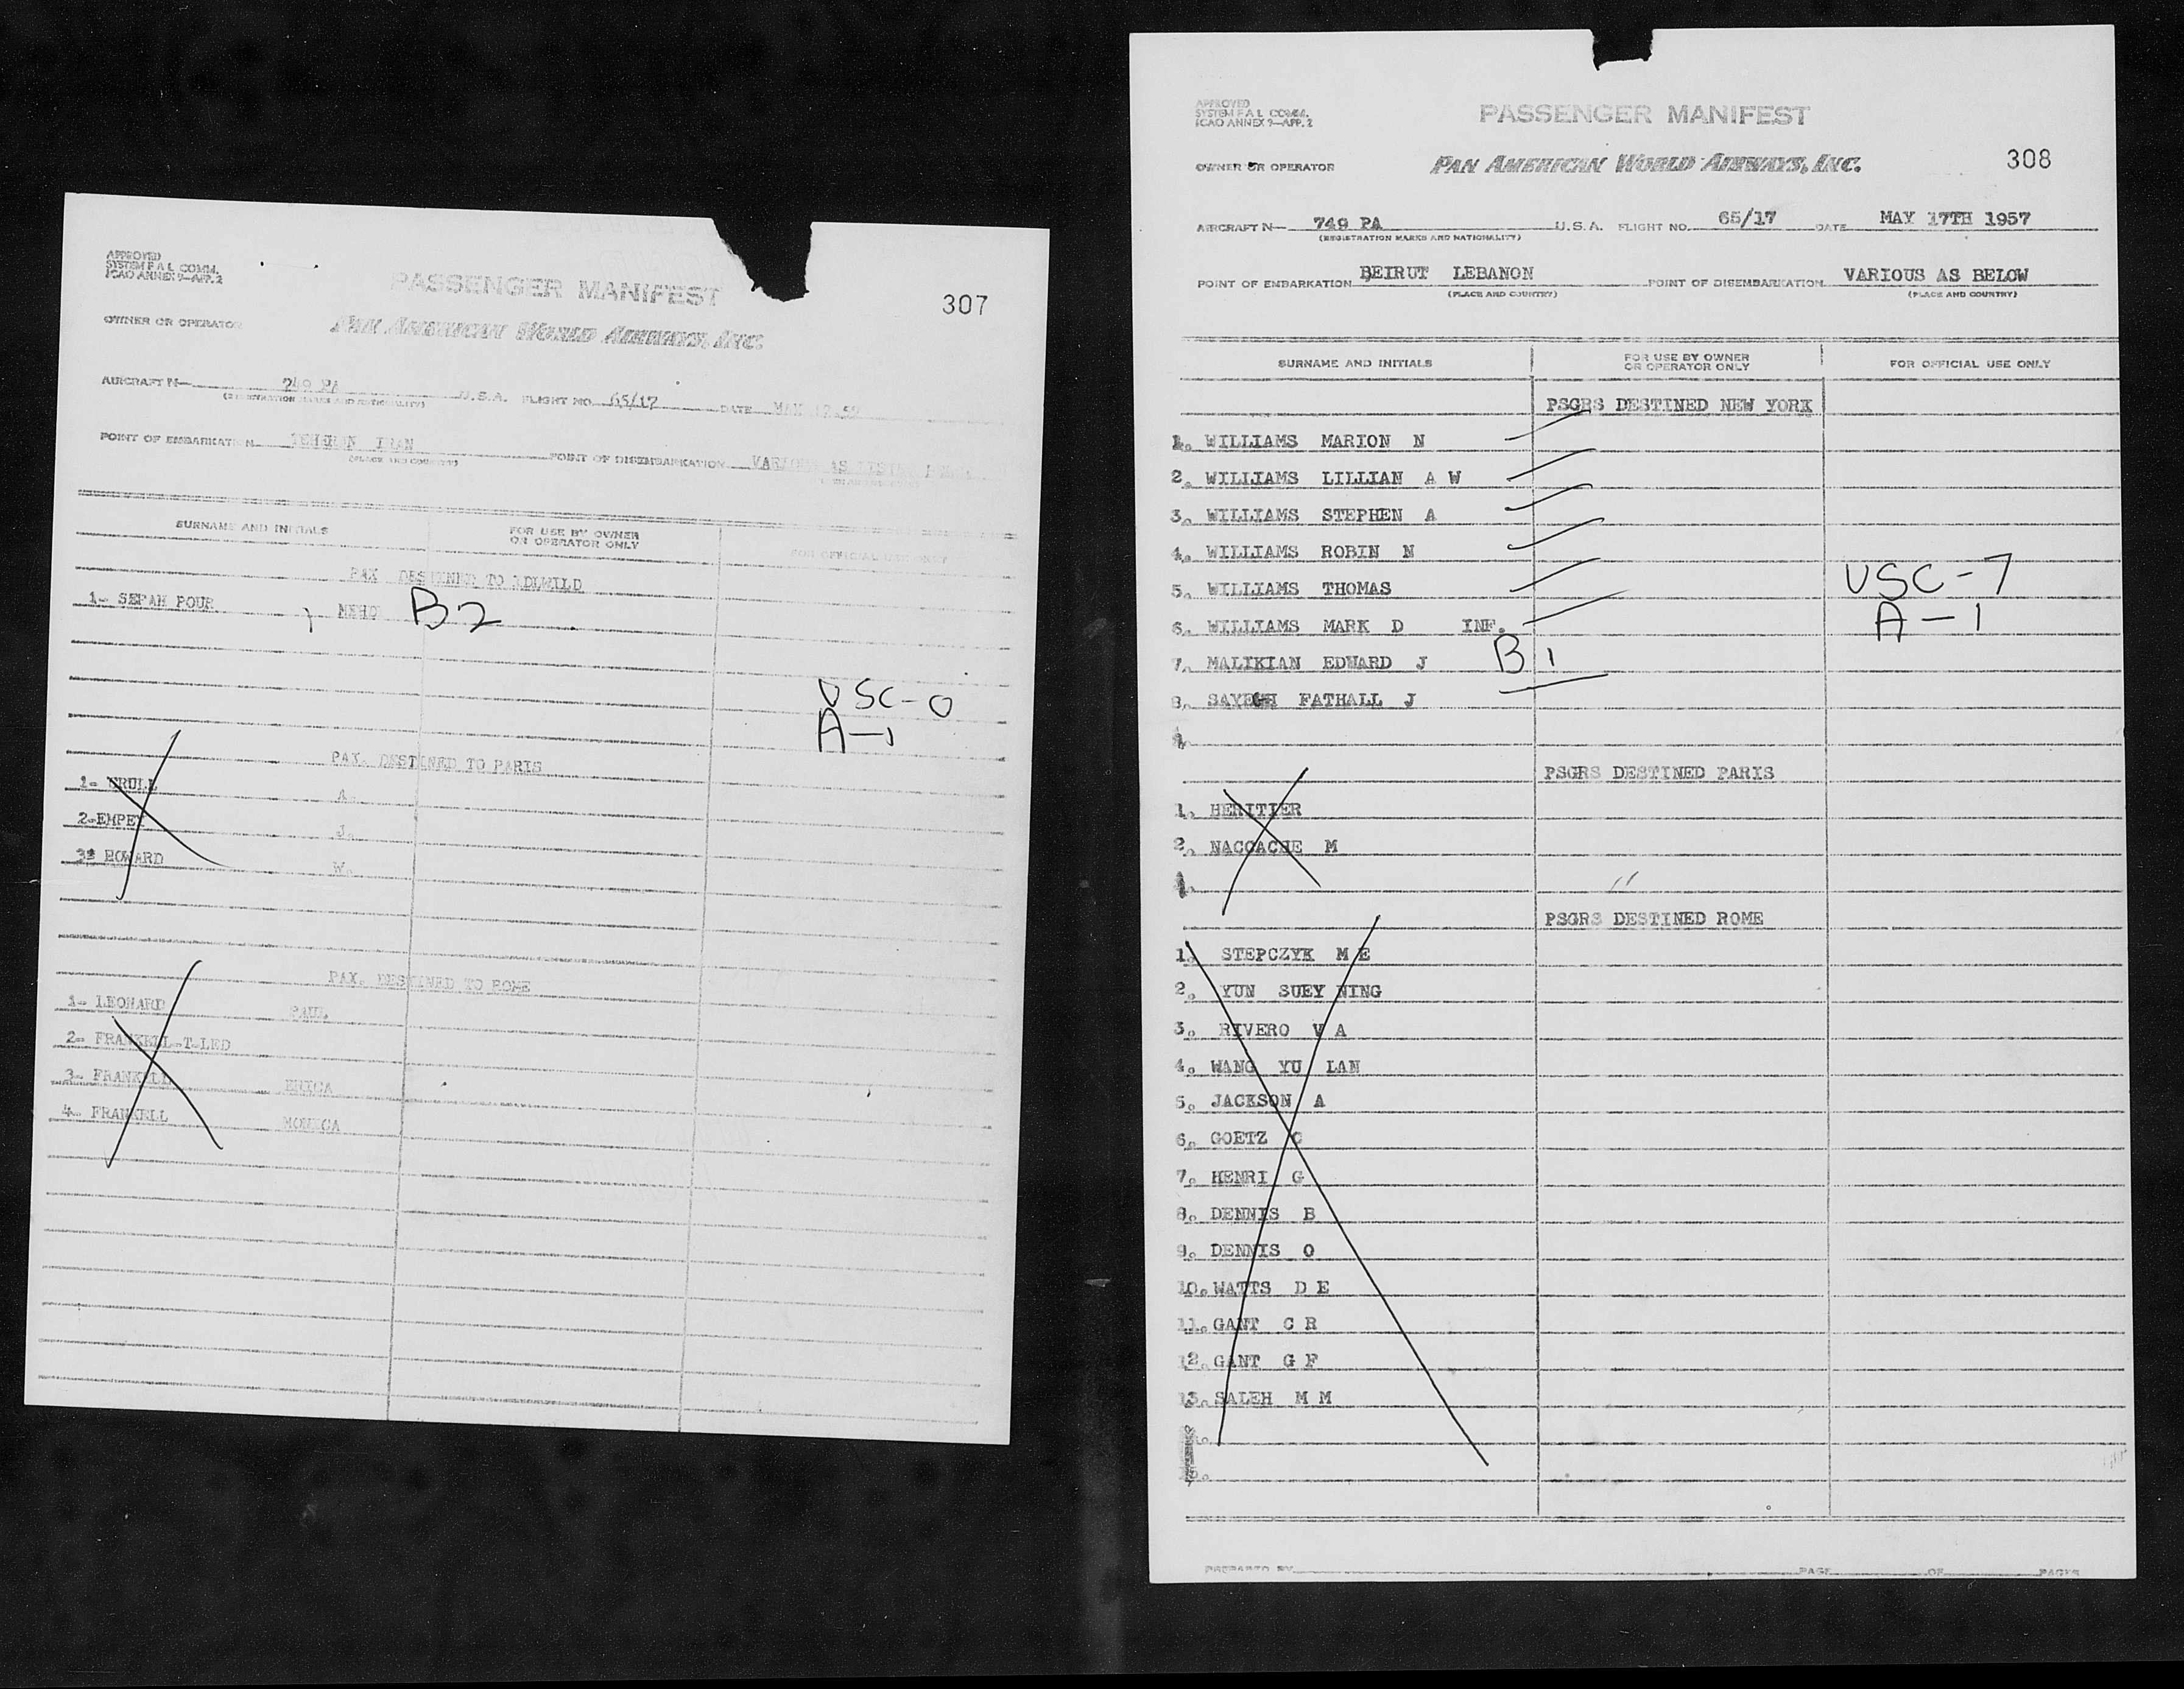 APPROVED
SYSTEM F A L COMM.
ICAO ANNEX 9—APP. 2
PASSENGER MANIFEST
307
OWNER OR OPERATOR
PAN AMERICAN WORLD AIRWAYS, INC.
AIRCRAFT N— 749 PA U.S.A. FLIGHT NO. 65/17 DATE MAY 17.57
(REGISTRATION MARKS AND NATIONALITY)
POINT OF EMBARKATION TEHRAN IRAN POINT OF DISEMBARKATION VARIOUS AS LISTED
(PLACE AND COUNTRY)
SURNAME AND INITIALS
FOR USE BY OWNER
OR OPERATOR ONLY
FOR OFFICIAL USE ONLY
PAX DESTINED TO IDLWILD
1- SEPAH POUR , B2
USC-0
A-1
PAX. DESTINED TO PARIS
1- KRULL A.
2-EMPEY J.
3- HOWARD W.
PAX. DESTINED TO ROME
1- LEONARD PAUL
2- FRANKELL-T-LED
3- FRANKELL ERICA
4- FRANKELL MONICA
APPROVED
SYSTEM F A L COMM.
ICAO ANNEX 9—APP. 2
PASSENGER MANIFEST
OWNER OR OPERATOR
PAN AMERICAN WORLD AIRWAYS, INC.
308
AIRCRAFT N— 749 PA U.S.A. FLIGHT NO. 65/17 DATE MAY 17TH 1957
(REGISTRATION MARKS AND NATIONALITY)
POINT OF EMBARKATION BEIRUT LEBANON POINT OF DISEMBARKATION VARIOUS AS BELOW
(PLACE AND COUNTRY) (PLACE AND COUNTRY)
SURNAME AND INITIALS
FOR USE BY OWNER
OR OPERATOR ONLY
FOR OFFICIAL USE ONLY
PSGRS DESTINED NEW YORK
1. WILLIAMS MARION N
2. WILLIAMS LILLIAN A W
3. WILLIAMS STEPHEN A
4. WILLIAMS ROBIN N
5. WILLIAMS THOMAS
USC-7
6. WILLIAMS MARK D INF.
A-1
7. MALIKIAN EDWARD J B1
8. SAYEGH FATHALL J
PSGRS DESTINED PARIS
1. HERITIER
2. NACCACHE M
PSGRS DESTINED ROME
1. STEPCZYK M E
2. YUN SUEY NING
3. RIVERO V A
4. WANG YU LAN
5. JACKSON A
6. GOETZ C
7. HENRI G
8. DENNIS B
9. DENNIS O
10. WATTS D E
11. GANT C R
12. GANT G F
13. SALEH M M
PREPARED BY PAGE OF PAGES